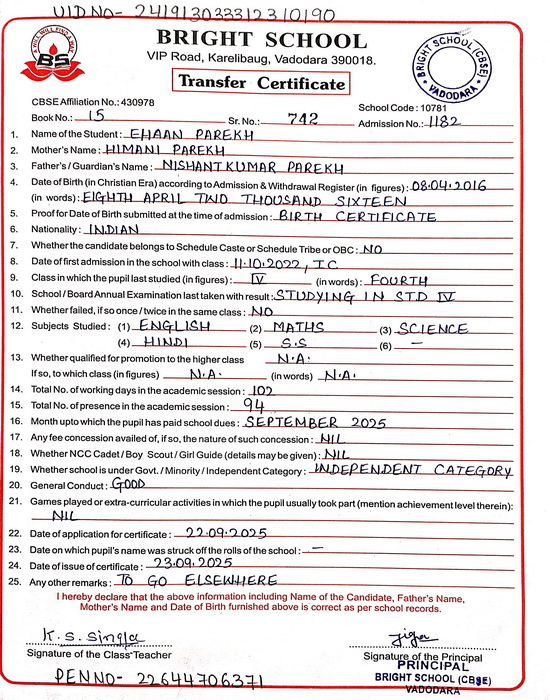 UID NO- 24191303331​2310190
A WILL WILL FIND A WAY
BS
BRIGHT SCHOOL
VIP Road, Karelibaug, Vadodara 390018.
Transfer Certificate
BRIGHT SCHOOL (CBSE) VADODARA
CBSE Affiliation No.: 430978 School Code : 10781
Book No.: 15 Sr. No.: 742 Admission No.: 1182
1. Name of the Student : EHAAN PAREKH
2. Mother's Name : HIMANI PAREKH
3. Father's / Guardian's Name : NISHANTKUMAR PAREKH
4. Date of Birth (in Christian Era) according to Admission & Withdrawal Register (in figures) : 08.04.2016
(in words) : EIGHTH APRIL TWO THOUSAND SIXTEEN
5. Proof for Date of Birth submitted at the time of admission : BIRTH CERTIFICATE
6. Nationality : INDIAN
7. Whether the candidate belongs to Schedule Caste or Schedule Tribe or OBC : NO
8. Date of first admission in the school with class : 11.10.2022, IC
9. Class in which the pupil last studied (in figures) : IV (in words) : FOURTH
10. School / Board Annual Examination last taken with result : STUDYING IN STD IV
11. Whether failed, if so once / twice in the same class : NO
12. Subjects Studied : (1) ENGLISH (2) MATHS (3) SCIENCE
(4) HINDI (5) S.S (6) —
13. Whether qualified for promotion to the higher class N.A.
If so, to which class (in figures) N.A. (in words) N.A.
14. Total No. of working days in the academic session : 102
15. Total No. of presence in the academic session : 94
16. Month upto which the pupil has paid school dues : SEPTEMBER 2025
17. Any fee concession availed of, if so, the nature of such concession : NIL
18. Whether NCC Cadet / Boy Scout / Girl Guide (details may be given) : NIL
19. Whether school is under Govt. / Minority / Independent Category : INDEPENDENT CATEGORY
20. General Conduct : GOOD
21. Games played or extra-curricular activities in which the pupil usually took part (mention achievement level therein) :
NIL
22. Date of application for certificate : 22.09.2025
23. Date on which pupil's name was struck off the rolls of the school : —
24. Date of issue of certificate : 23.09.2025
25. Any other remarks : TO GO ELSEWHERE
I hereby declare that the above information including Name of the Candidate, Father's Name,
Mother's Name and Date of Birth furnished above is correct as per school records.
K. S. Singla
Signature of the Class Teacher Signature of the Principal
PRINCIPAL
BRIGHT SCHOOL (CBSE)
VADODARA
PEN NO- 22644706371